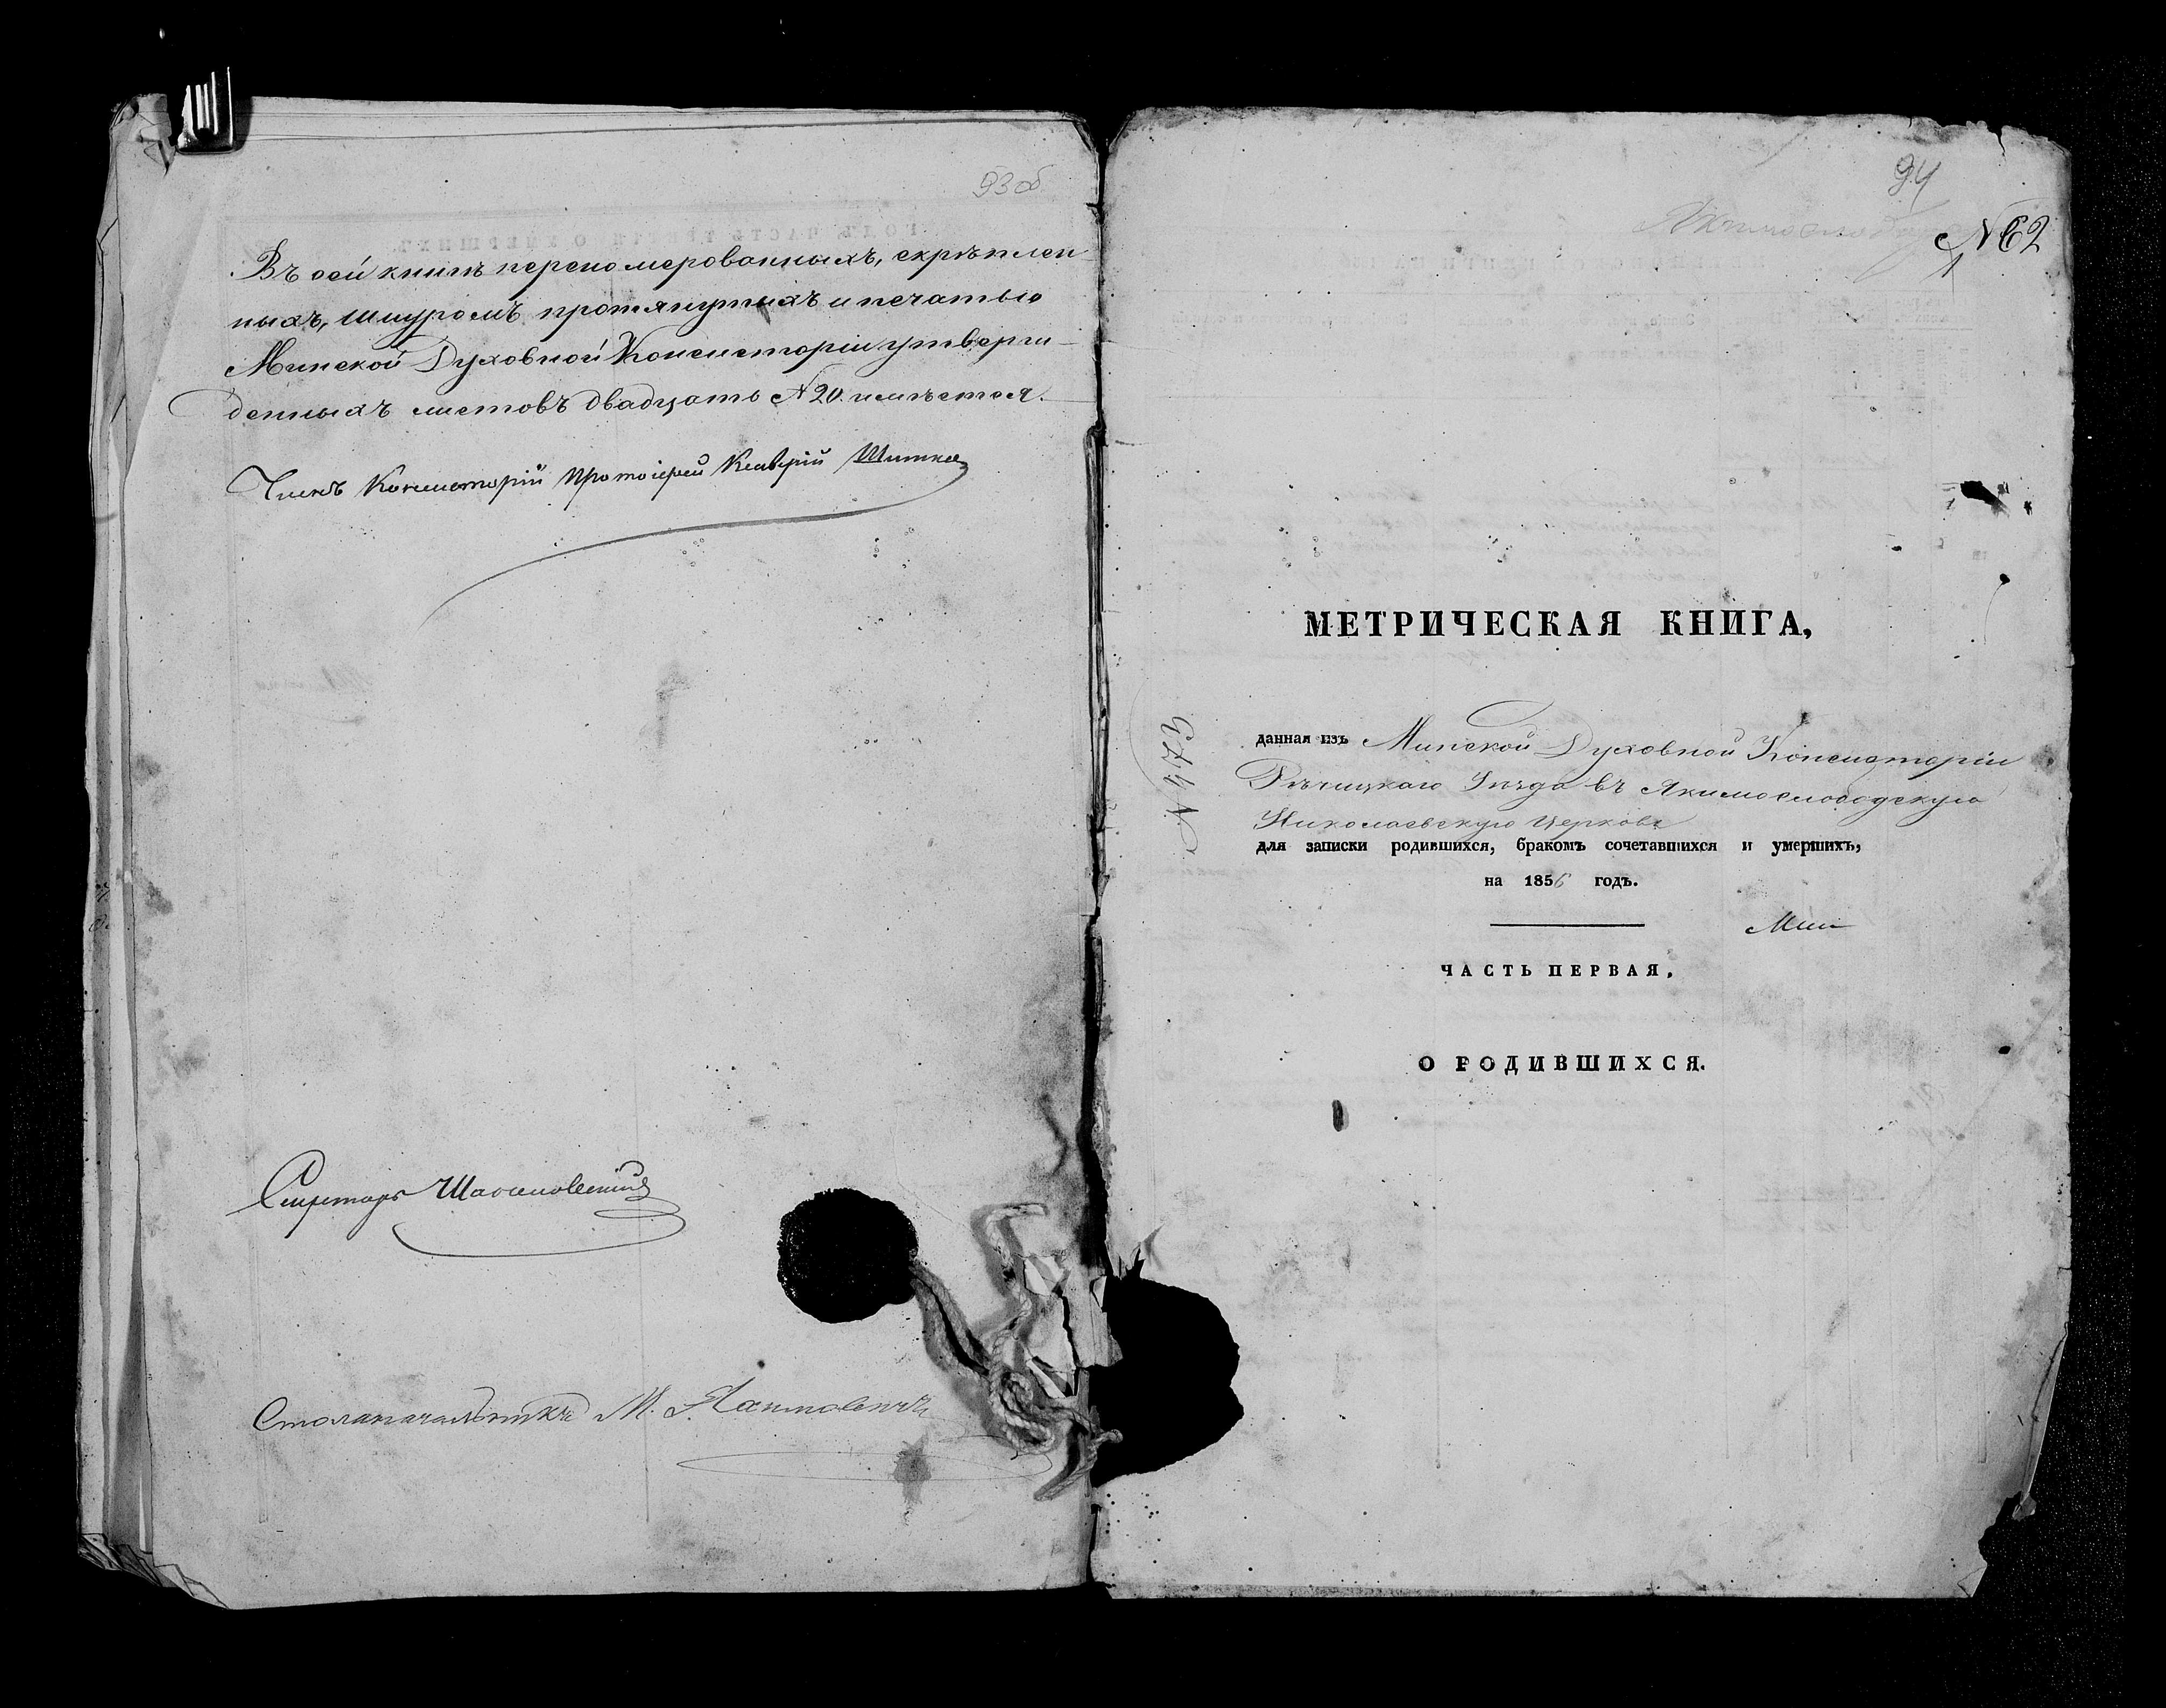 93 об
Въ сей книгѣ переномерованныхъ, скрѣплен
ныхъ, шнуромъ протянутыхъ и печатью
Минской Духовной Консисторіи утверж-
денныхъ листовъ двадцать № 20. имѣется.
Членъ Консисторіи Протоіерей Ксаверій Шитка
Секретарь
Столоначальникъ М.
94
№ 62
1
МЕТРИЧЕСКАЯ КНИГА,
данная изъ Минской Духовной Консисторіи
Рѣчицкаго Уѣзда въ Якимослободскую
Николаевскую Церковь
для записки родившихся, бракомъ сочетавшихся и умершихъ,
на 1856 годъ.
ЧАСТЬ ПЕРВАЯ.
О РОДИВШИХСЯ.